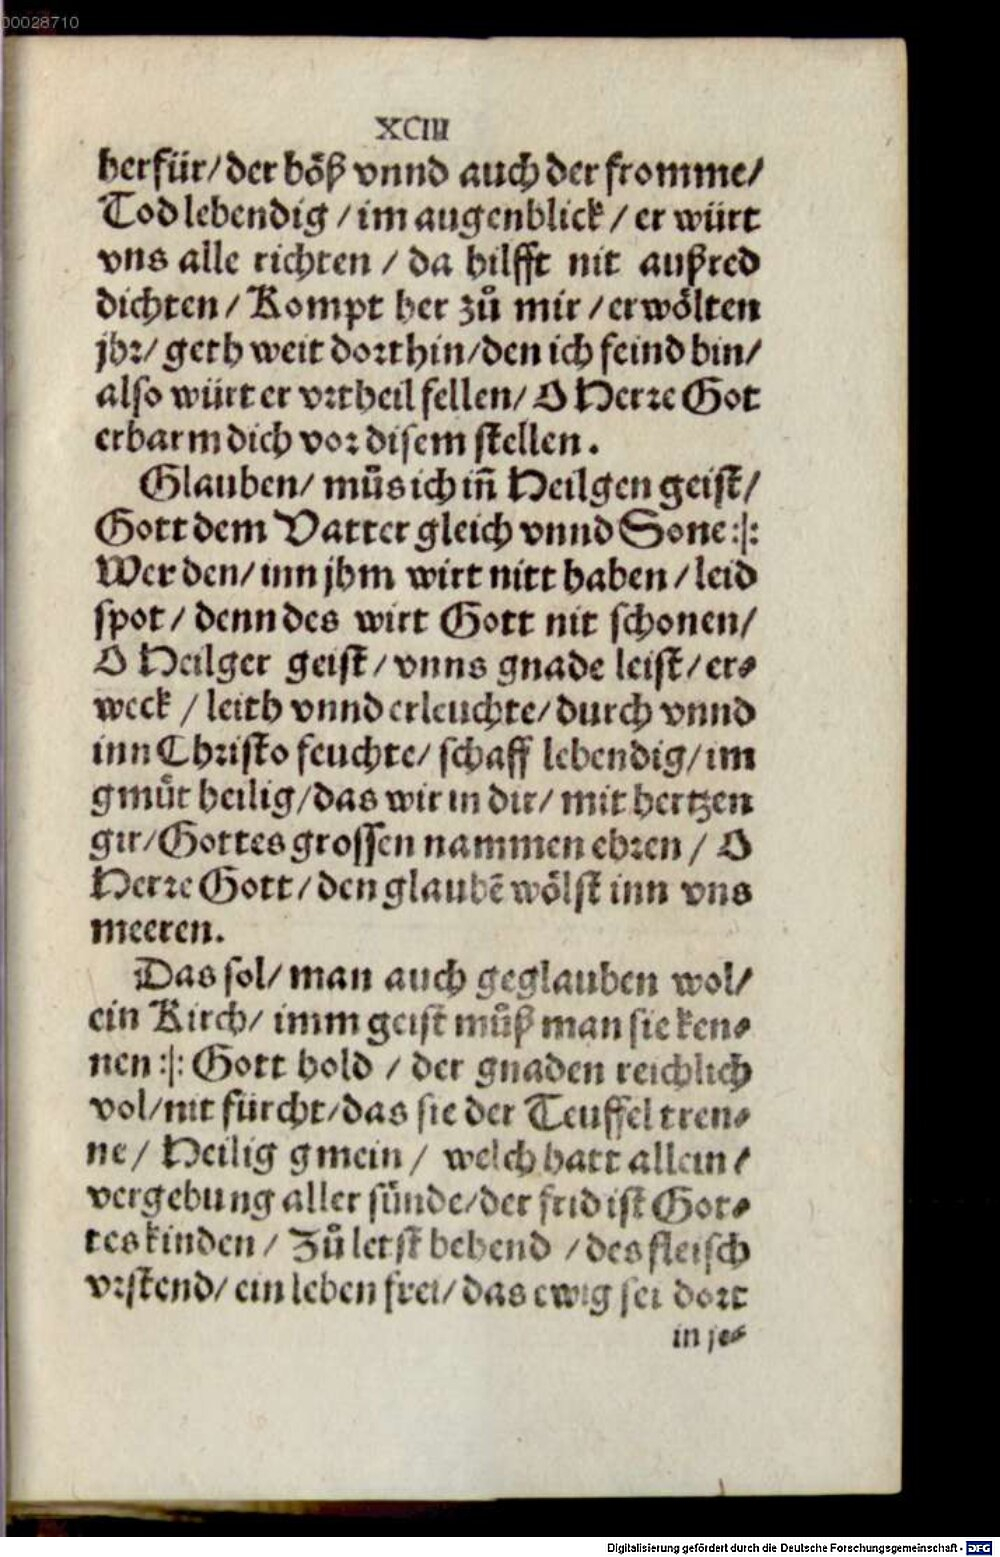 00028710
XCIII
herfür/ der böß vnnd auch der fromme/
Tod lebendig / im augenblick / er würt
vns alle richten / da hilfft nit außred
dichten / Kompt her zů mir / erwölten
jhr/ geth weit dorthin/ den ich feind bin/
also würt er vrtheil fellen/ O Herre Got
erbarm dich vor disem stellen.
Glauben/ můs ich iñ Heilgen geist/
Gott dem Vatter gleich vnnd Sone :|:
Wer den/ inn jhm wirt nitt haben / leid
spot / denn des wirt Gott nit schonen/
O Heilger geist / vnns gnade leist / er⸗
weck / leith vnnd erleuchte/ durch vnnd
inn Christo feuchte/ schaff lebendig/ im
gmůt heilig/ das wir in dir/ mit hertzen
gir/ Gottes grossen nammen ehren / O
Herre Gott / den glaubē wölst inn vns
meeren.
Das sol/ man auch geglauben wol/
ein Kirch/ imm geist můß man sie ken⸗
nen :|: Gott hold / der gnaden reichlich
vol/ nit fürcht/ das sie der Teuffel tren⸗
ne / Heilig gmein / welch hatt allein /
vergebung aller sünde/ der frid ist Got⸗
tes kinden / Zů letst behend / des fleisch
vrstend/ ein leben frei/ das ewig sei dort
in je⸗
Digitalisierung gefördert durch die Deutsche Forschungsgemeinschaft - DFG